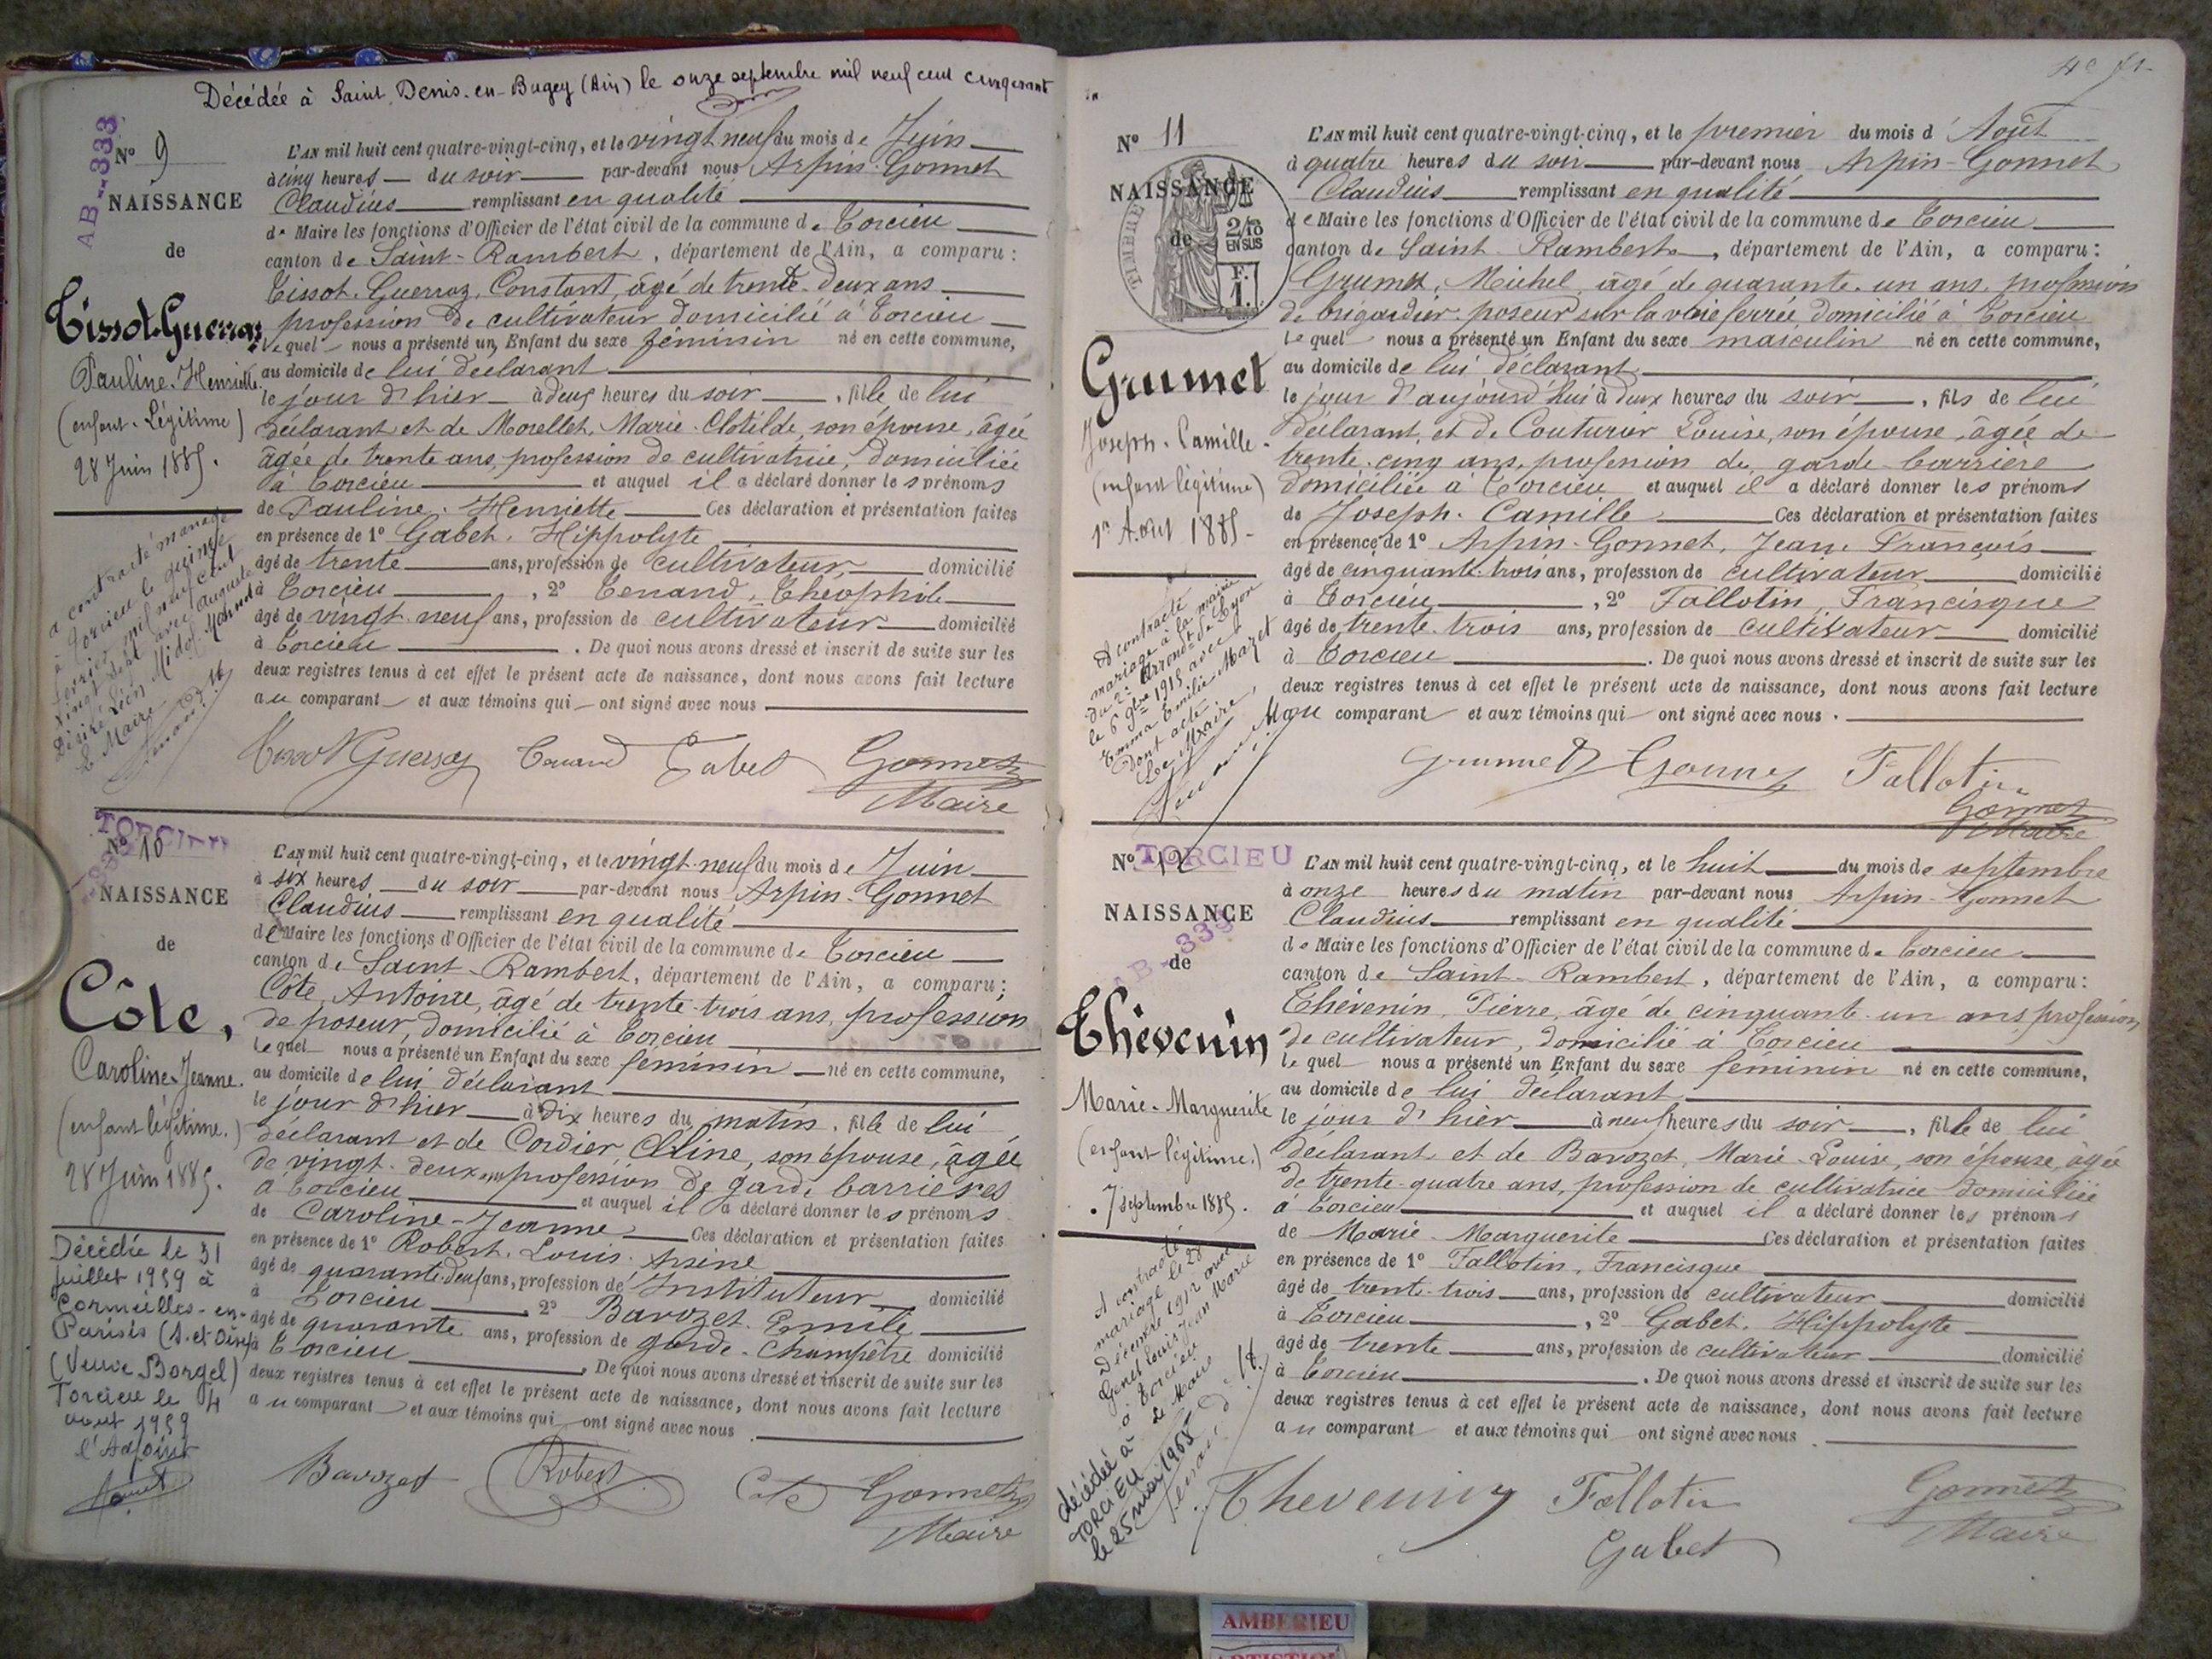 Décédée à Saint Denis-en-Bugey (Ain) le onze septembre mil neuf cent cinquante
AB--333
N° 9
NAISSANCE
de
Tissot-Guerraz
Pauline-Henriette.
(enfant-Légitime)
28 Juin 1885.
a contracté mariage
à Torcieu le quinze
février mil neuf cent
vingt sept avec Auguste
Désiré Léon Midol-Monnet
Le Maire
L'AN mil huit cent quatre-vingt-cinq, et le vingt neuf du mois de Juin
à cinq heures du soir par-devant nous Arpin-Gonnet
Claudius remplissant en qualité
de Maire les fonctions d'Officier de l'état civil de la commune de Torcieu
canton de Saint-Rambert, département de l'Ain, a comparu :
Tissot-Guerraz, Constant, âgé de trente-deux ans
profession de cultivateur domicilié à Torcieu
lequel nous a présenté un Enfant du sexe féminin né en cette commune,
au domicile de lui déclarant
le jour d'hier à deux heures du soir, fille de lui
déclarant et de Morellet, Marie-Clotilde, son épouse, âgée
âgée de trente ans, profession de cultivatrice, domiciliée
à Torcieu et auquel il a déclaré donner les prénoms
de Pauline-Henriette Ces déclaration et présentation faites
en présence de 1° Gabet, Hippolyte
âgé de trente ans, profession de cultivateur domicilié
à Torcieu, 2° Tenand, Théophile
âgé de vingt-neuf ans, profession de cultivateur domicilié
à Torcieu. De quoi nous avons dressé et inscrit de suite sur les
deux registres tenus à cet effet le présent acte de naissance, dont nous avons fait lecture
au comparant et aux témoins qui ont signé avec nous
Tissot Guerraz Tenand Gabet Gonnet
Maire
TORCIEU
N° 10
NAISSANCE
de
Côte,
Caroline-Jeanne.
(enfant légitime.)
28 Juin 1885.
Décédée le 31
juillet 1959 à
Cormeilles-en-
Parisis (S. et Oise)
(Veuve Borgel)
Torcieu le 4
août 1959
l'Adjoint
L'AN mil huit cent quatre-vingt-cinq, et le vingt-neuf du mois de Juin
à six heures du soir par-devant nous Arpin-Gonnet
Claudius remplissant en qualité
de Maire les fonctions d'Officier de l'état civil de la commune de Torcieu
canton de Saint-Rambert, département de l'Ain, a comparu :
Côte, Antoine, âgé de trente-trois ans, profession
de poseur, domicilié à Torcieu
lequel nous a présenté un Enfant du sexe féminin né en cette commune,
au domicile de lui déclarant
le jour d'hier à dix heures du matin, fille de lui
déclarant et de Cordier, Céline, son épouse, âgée
de vingt-deux ans profession de garde barrières
à Torcieu et auquel il a déclaré donner les prénoms
de Caroline-Jeanne Ces déclaration et présentation faites
en présence de 1° Robert, Louis-Arsène
âgé de quarante-deux ans, profession de Instituteur domicilié
à Torcieu 2° Bavozet, Emile
âgé de quarante ans, profession de garde-champêtre domicilié
à Torcieu. De quoi nous avons dressé et inscrit de suite sur les
deux registres tenus à cet effet le présent acte de naissance, dont nous avons fait lecture
au comparant et aux témoins qui ont signé avec nous
Bavozet Robert Cote Gonnet
Maire
N° 11
NAISSANCE
de
TIMBRE
2/10
EN SUS
F.
1.
Grumet
Joseph-Camille-
(enfant légitime)
1er Août 1885-
A contracté
mariage à la mairie
du 2e Arrondt de Lyon
le 6 9bre 1915 avec
Emma Emilie Mazet
Dont acte
Le Maire,
L'AN mil huit cent quatre-vingt-cinq, et le premier du mois d'Août
à quatre heures du soir par-devant nous Arpin-Gonnet
Claudius remplissant en qualité
de Maire les fonctions d'Officier de l'état civil de la commune de Torcieu
canton de Saint-Rambert, département de l'Ain, a comparu :
Grumet, Michel, âgé de quarante-un ans, profession
de brigadier-poseur sur la voie ferrée, domicilié à Torcieu
lequel nous a présenté un Enfant du sexe masculin né en cette commune,
au domicile de lui déclarant
le jour d'aujourd'hui à deux heures du soir, fils de lui
déclarant, et de Couturier Louise, son épouse, âgée de
trente-cinq ans, profession de garde-barrière
domiciliée à Torcieu et auquel il a déclaré donner les prénoms
de Joseph-Camille Ces déclaration et présentation faites
en présence de 1° Arpin-Gonnet, Jean François
âgé de cinquante-trois ans, profession de cultivateur domicilié
à Torcieu, 2° Fallotin, Francisque
âgé de trente-trois ans, profession de cultivateur domicilié
à Torcieu. De quoi nous avons dressé et inscrit de suite sur les
deux registres tenus à cet effet le présent acte de naissance, dont nous avons fait lecture
au comparant et aux témoins qui ont signé avec nous.
Grumet Gonnet Fallotin
Gonnet
Maire
N° 12 TORCIEU
NAISSANCE
AB--333
de
Thévenin
Marie-Marguerite
(enfant légitime.)
7 septembre 1885.
A contracté
mariage le 28
Décembre 1912 avec
Genet Louis Jean Marie
à Torcieu
Le Maire
décédée à
TORCIEU
le 25 mai 1968
L'AN mil huit cent quatre-vingt-cinq, et le huit du mois de septembre
à onze heures du matin par-devant nous Arpin-Gonnet
Claudius remplissant en qualité
de Maire les fonctions d'Officier de l'état civil de la commune de Torcieu
canton de Saint-Rambert, département de l'Ain, a comparu :
Thévenin, Pierre, âgé de cinquante-un ans profession
de cultivateur, domicilié à Torcieu
lequel nous a présenté un Enfant du sexe féminin né en cette commune,
au domicile de lui déclarant
le jour d'hier à neuf heures du soir, fille de lui
déclarant et de Bavozet, Marie-Louise, son épouse, âgée
de trente-quatre ans, profession de cultivatrice domiciliée
à Torcieu et auquel il a déclaré donner les prénoms
de Marie-Marguerite Ces déclaration et présentation faites
en présence de 1° Fallotin, Francisque
âgé de trente-trois ans, profession de cultivateur domicilié
à Torcieu, 2° Gabet, Hippolyte
âgé de trente ans, profession de cultivateur domicilié
à Torcieu. De quoi nous avons dressé et inscrit de suite sur les
deux registres tenus à cet effet le présent acte de naissance, dont nous avons fait lecture
au comparant et aux témoins qui ont signé avec nous
Thevenin Fallotin Gonnet
Gabet Maire
AMBERIEU